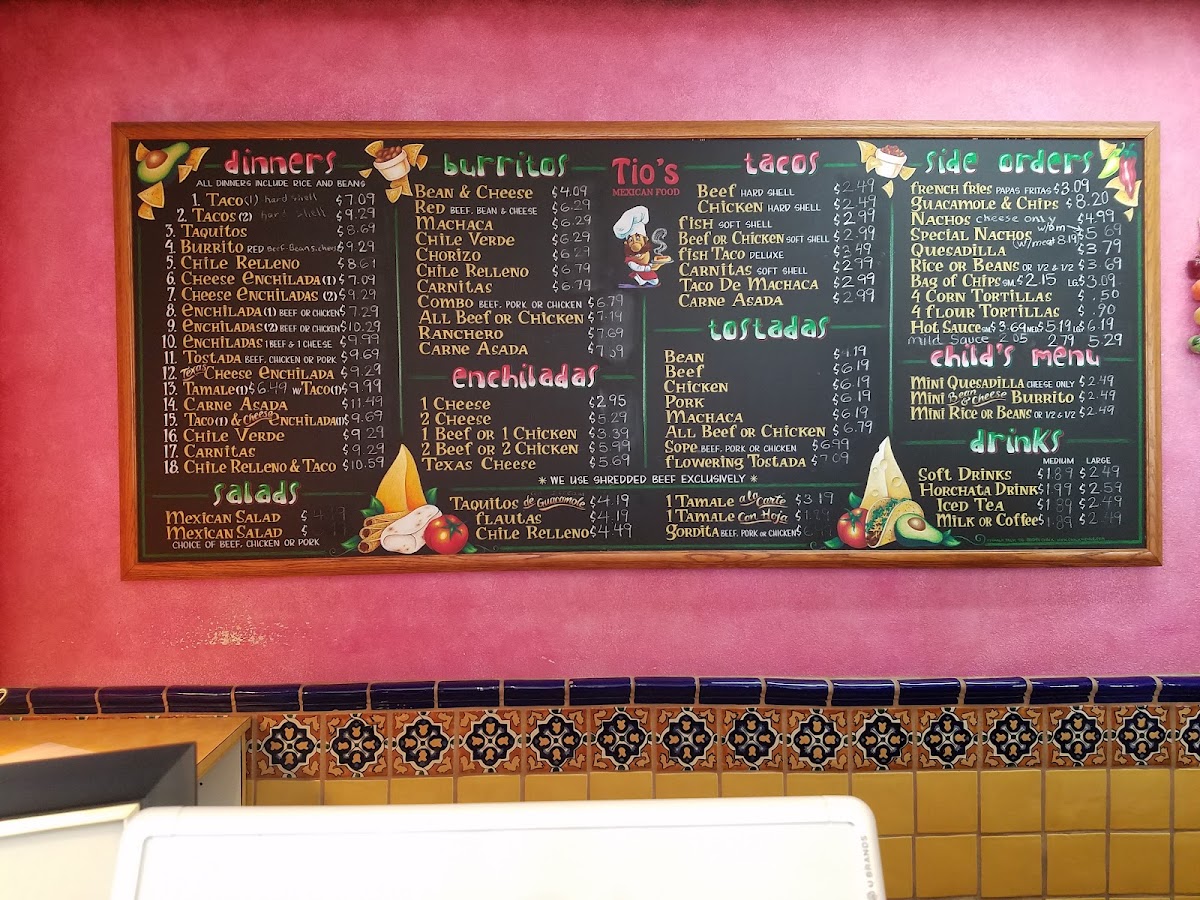 dinners
ALL DINNERS INCLUDE RICE AND BEANS
1. TACO(1) hard shell $7.09
2. TACOS(2) hard shell $9.29
3. TAQUITOS $8.69
4. BURRITO RED $9.29
5. CHILE RELLENO $8.61
6. CHEESE ENCHILADA(1) $7.09
7. CHEESE ENCHILADAS (2) $9.29
8. ENCHILADA(1) BEEF OR CHICKEN $7.29
9. ENCHILADAS(2) BEEF OR CHICKEN $10.29
10. ENCHILADAS 1 BEEF & 1 CHEESE $9.99
11. TOSTADA BEEF, CHICKEN OR PORK $9.69
12. Texas CHEESE ENCHILADA $9.29
13. TAMALE(1) $6.49 W/TACO(1) $9.99
14. CARNE ASADA $11.49
15. TACO(1) & Cheese ENCHILADA(1) $9.69
16. CHILE VERDE $9.29
17. CARNITAS $9.29
18. CHILE RELLENO & TACO $10.59
salads
MEXICAN SALAD $
MEXICAN SALAD $
CHOICE OF BEEF, CHICKEN OR PORK
burritos
BEAN & CHEESE $4.09
RED BEEF, BEAN & CHEESE $6.29
MACHACA $6.29
CHILE VERDE $6.29
CHORIZO $6.29
CHILE RELLENO $6.79
CARNITAS $6.79
COMBO BEEF, PORK OR CHICKEN $6.79
ALL BEEF OR CHICKEN $7.19
RANCHERO $7.69
CARNE ASADA
enchiladas
1 CHEESE $2.95
2 CHEESE $5.29
1 BEEF OR 1 CHICKEN $3.39
2 BEEF OR 2 CHICKEN $5.99
TEXAS CHEESE $5.69
Tio's
MEXICAN FOOD
tacos
BEEF HARD SHELL $2.49
CHICKEN HARD SHELL $2.49
FISH SOFT SHELL $2.99
BEEF OR CHICKEN SOFT SHELL $2.99
FISH TACO DELUXE $3.49
CARNITAS SOFT SHELL $2.99
TACO DE MACHACA $2.99
CARNE ASADA $2.99
tostadas
BEAN $4.19
BEEF $6.19
CHICKEN $6.19
PORK $6.19
MACHACA $6.19
ALL BEEF OR CHICKEN $6.79
SOPE BEEF, PORK OR CHICKEN $6.99
FLOWERING TOSTADA $7.09
* WE USE SHREDDED BEEF EXCLUSIVELY *
TAQUITOS de Guacamole $4.19
FLAUTAS $4.19
CHILE RELLENO $4.49
1 TAMALE a la Carte $3.19
1 TAMALE Con Hoja
GORDITA BEEF, PORK OR CHICKEN
side orders
FRENCH FRIES PAPAS FRITAS $3.09
GUACAMOLE & CHIPS $8.20
NACHOS cheese only $4.99
SPECIAL NACHOS $5.69
(w/meat 8.19)
QUESADILLA $3.79
RICE OR BEANS OR 1/2 & 1/2 $3.69
BAG OF CHIPS SM. $2.15 LG. $3.09
4 CORN TORTILLAS $.50
4 FLOUR TORTILLAS $.90
HOT SAUCE SM $3.69 MED $5.19 LG $6.19
mild Sauce 2.05 2.79 5.29
child's menu
MINI QUESADILLA CHEESE ONLY $2.49
MINI Bean & Cheese BURRITO $2.49
MINI RICE OR BEANS OR 1/2 & 1/2 $2.49
drinks
MEDIUM LARGE
SOFT DRINKS $1.89 $2.49
HORCHATA DRINK $1.99 $2.59
ICED TEA $1.89 $2.49
MILK OR COFFEE $1.89 $2.49
U BRANDS